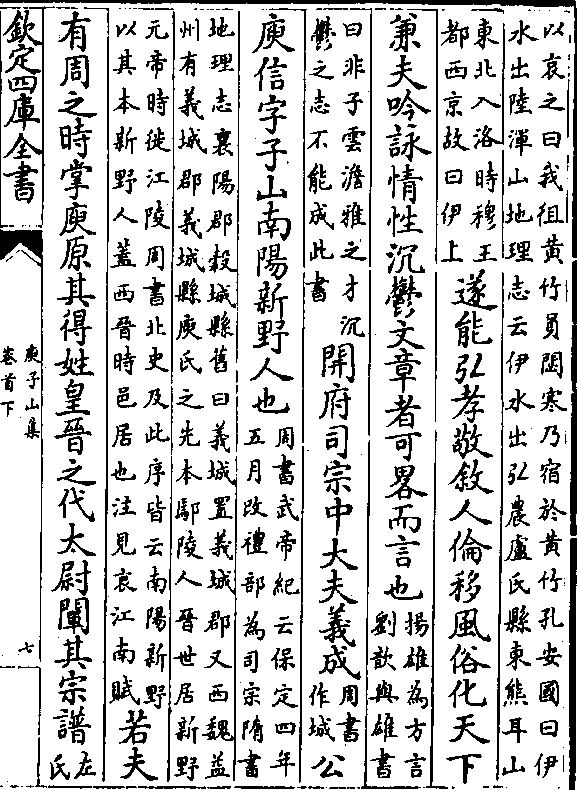 以哀之曰我徂黄竹員閟寒乃宿於黄竹孔安國曰伊
水出陸渾山地理志云伊水出弘農盧氏縣東熊耳山
東北入洛時穆王
都西京故曰伊上
遂能弘孝敬敘人倫移風俗化天下
兼夫吟詠情性沉鬱文章者可畧而言也
揚雄為方言
劉歆與雄書
曰非子雲澹雅之才沉
鬱之志不能成此書
開府司宗中大夫義成
周書
作城
公
庾信字子山南陽新野人也
周書武帝紀云保定四年
五月改禮部為司宗隋書
地理志襄陽郡穀城縣舊曰義城置義城郡又西魏益
州有義城郡義城縣庾氏之先本鄢陵人晉世居新野
元帝時徙江陵周書北史及此序皆云南陽新野
以其本新野人蓋西晉時邑居也注見哀江南賦
若夫
有周之時掌庾原其得姓皇晉之代太尉闡其宗譜
左
氏
欽定四庫全書
庾子山集
卷首下
七